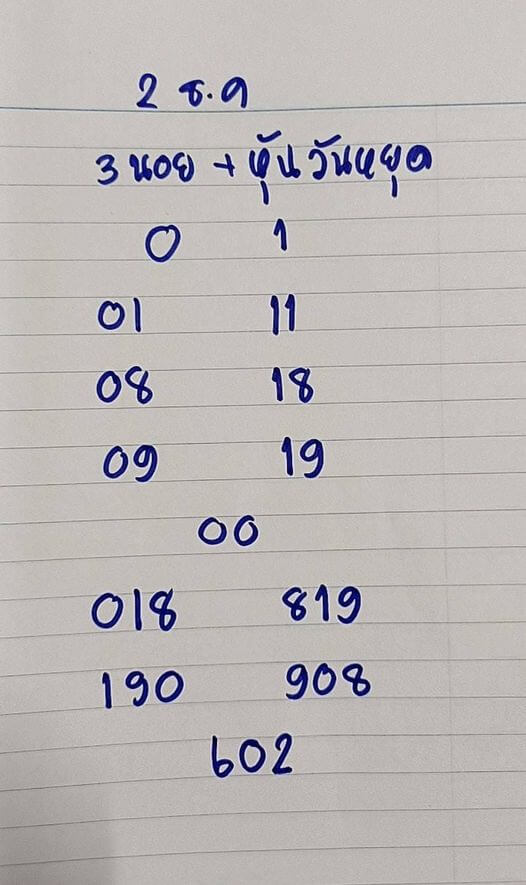 2 ธ.ค
3 นอย + หุ้น วันหยุด
0 1
01 11
08 18
09 19
00
018 819
190 908
602